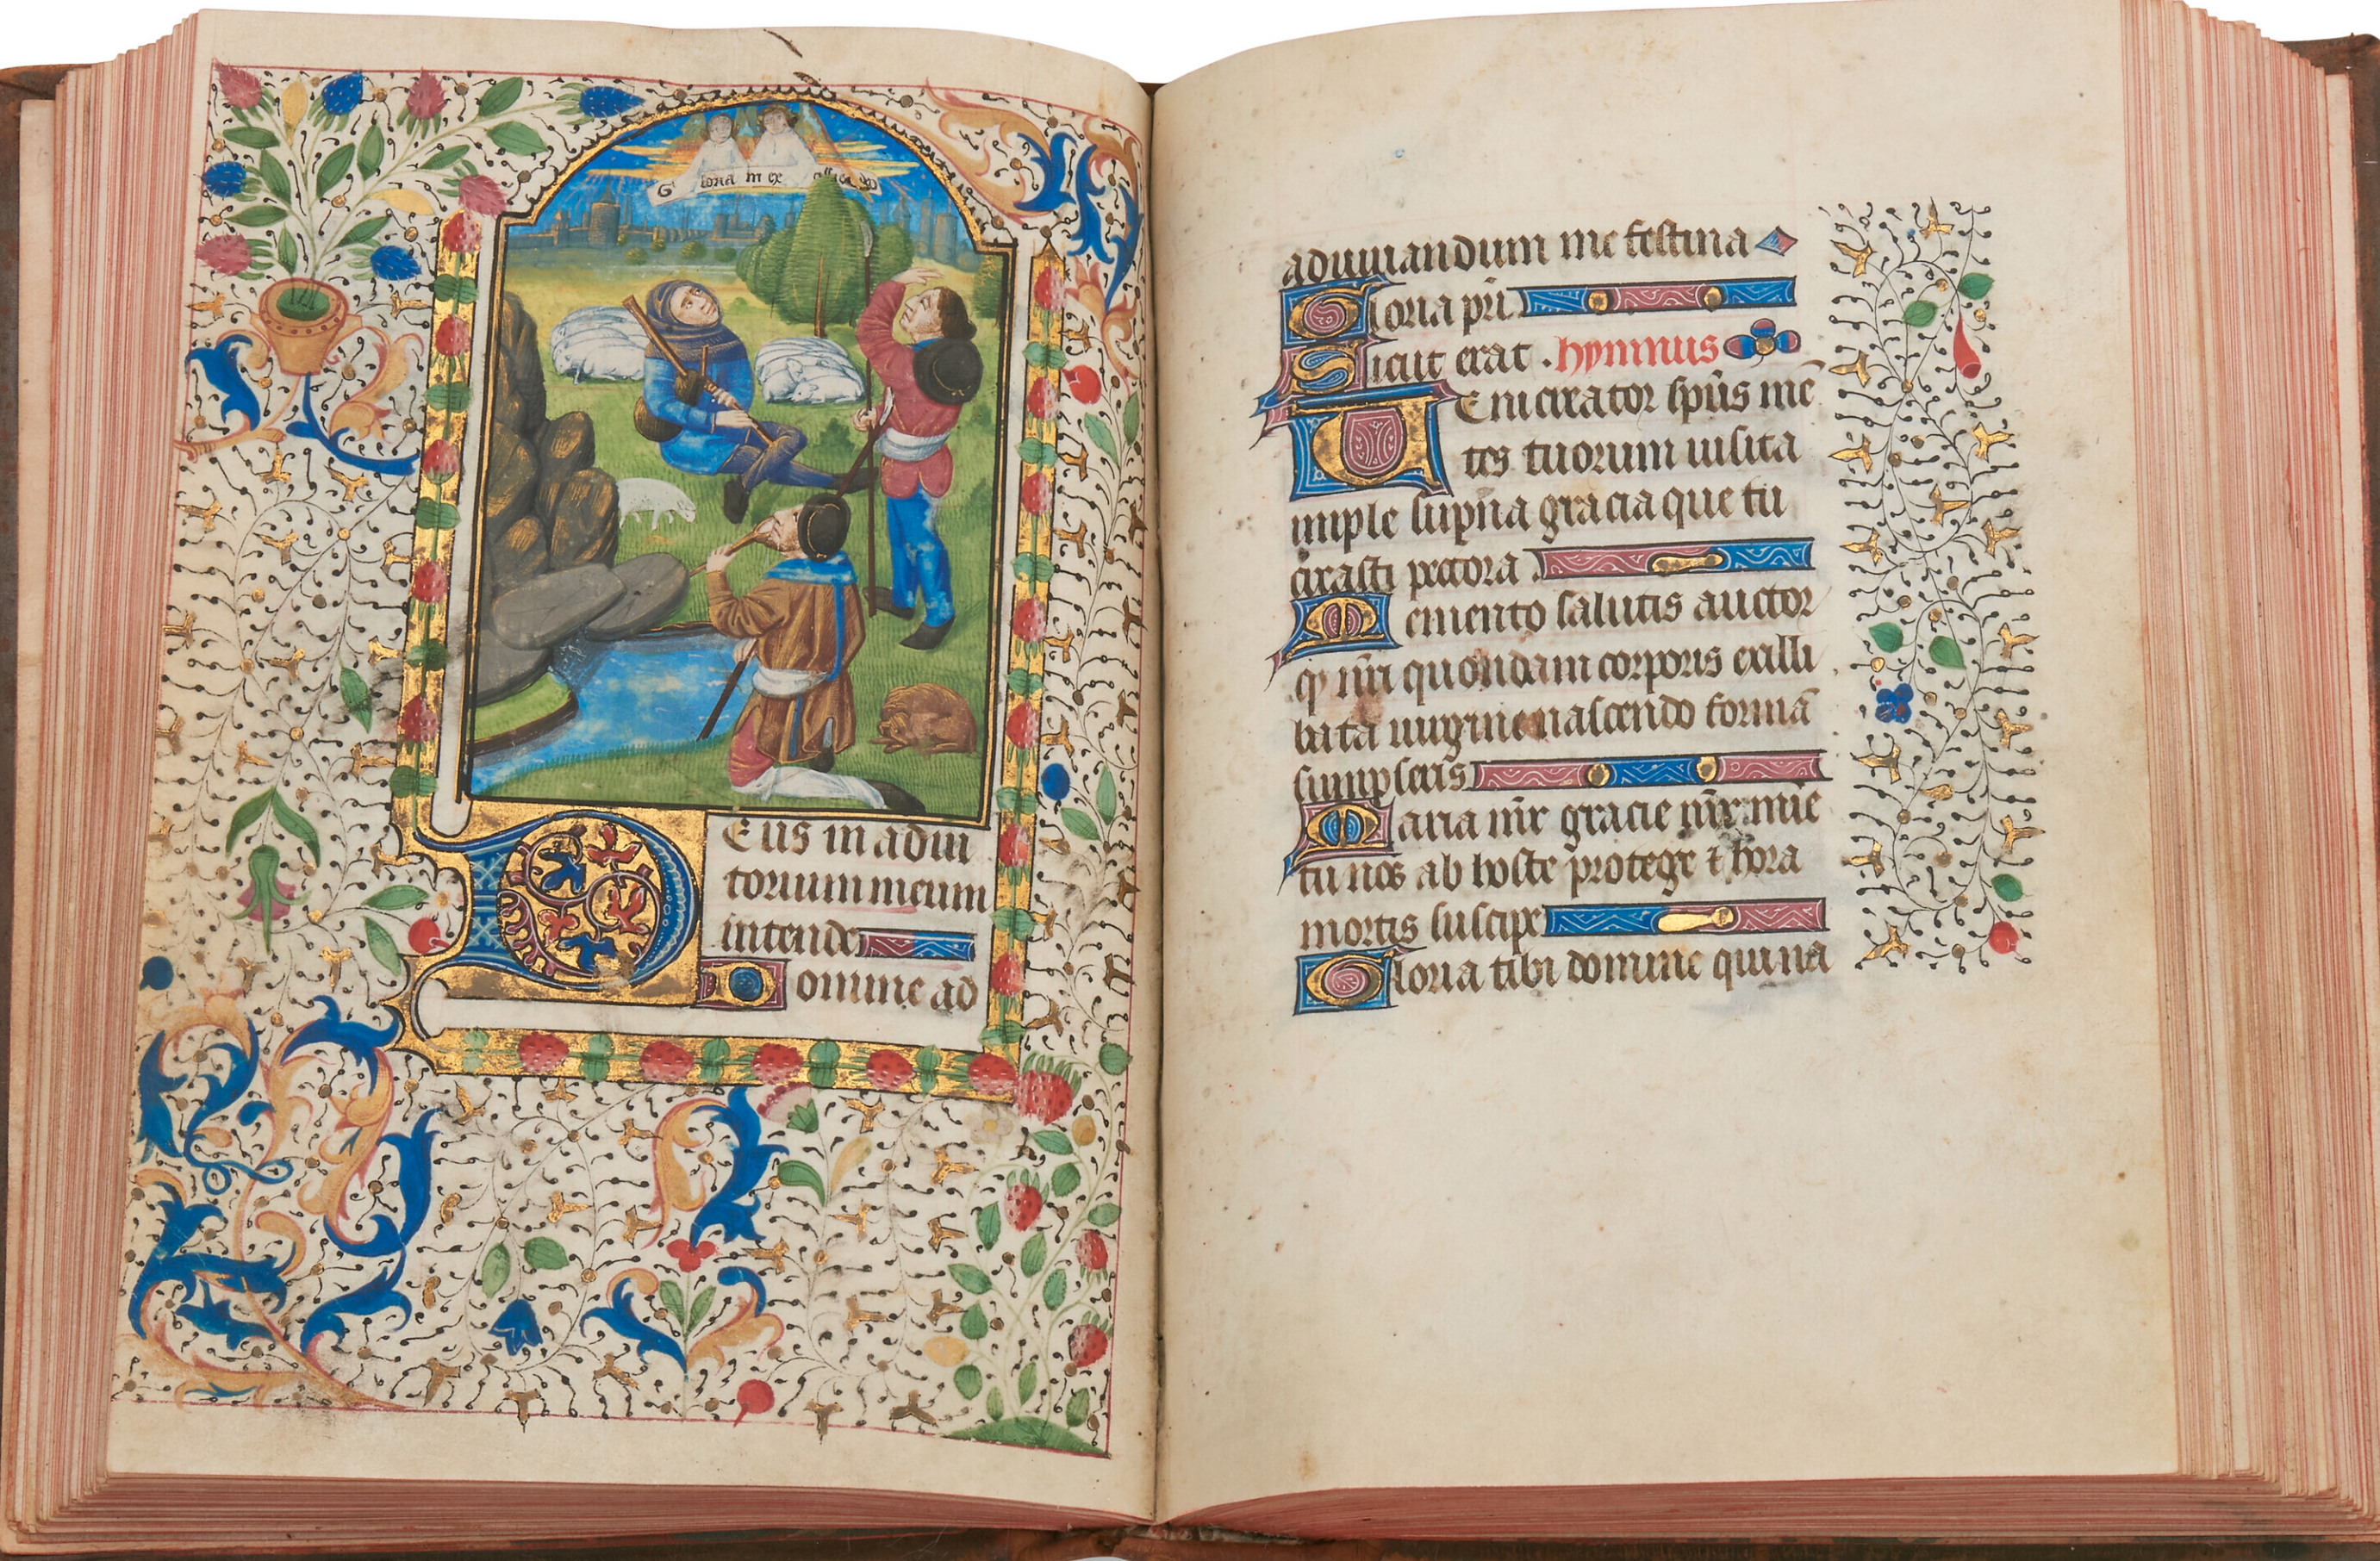 Gloria in excelsis
Deus in adiu
torium meum
intende
Domine ad
adiuuandum me festina
Gloria pr̄i
Sicut erat . hymnus
Veni creator sp̄us mē
tes tuorum uisita
imple sup̄na gracia que tu
creasti pectora
Memento salutis auctor
qͥ nr̄i quondam corporis ex illi
bata uirgine nascendo formā
sumpseris
Maria mr̄ gracie mr̄ mie
tu nos ab hoste protege ⁊ hora
mortis suscipe
Gloria tibi domine qui na